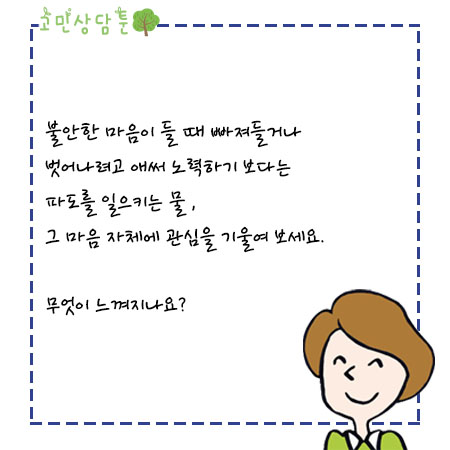 고민상담툰
불안한 마음이 들 때 빠져들거나
벗어나려고 애써 노력하기 보다는
파도를 일으키는 물,
그 마음 자체에 관심을 기울여 보세요.
무엇이 느껴지나요?